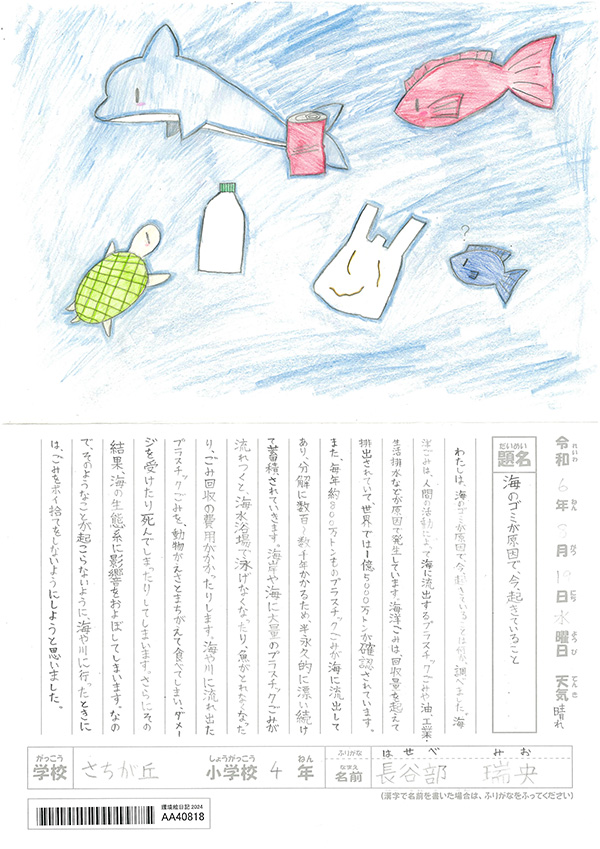 ?
令和6年8月19日水曜日 天気 晴れ
れいわ ねん がつ にち ようび てんき
だいめい
題名 海のゴミが原因で、今起きていること
わたしは、海のゴミが原因で今起きていることは何か調べました。海
洋ごみは、人間の活動によって海に流出するプラスチックごみや油、工業・
生活排水などが原因で発生しています。海洋ごみは、回収量を超えて
排出されていて、世界では1億5000万トンが確認されています。
また、毎年約800万トンものプラスチックごみが海に流出して
あり、分解に数百〜数千年かかるため、半永久的に漂い続け
て蓄積されていきます。海岸や海に大量のプラスチックごみが
流れつくと、海水浴場で泳げなくなったり、魚がとれなくなった
り、ごみ回収の費用がかかったりします。海や川に流れ出た
プラスチックごみを、動物がえさとまちがえて食べてしまい、ダメー
ジを受けたり死んでしまったりしてしまいます。さらにその
結果、海の生態系に影響をおよぼしてしまいます。なの
で、そのようなことが起こらないように海や川に行ったときに
は、ごみをポイ捨てをしないようにしようと思いました。
がっこう しょうがっこう ねん ふりがな はせべ みお
学校 さちが丘 小学校 4年 なまえ 名前 長谷部 瑞央
(漢字で名前を書いた場合は、ふりがなをふってください)
環境絵日記 2024
AA40818